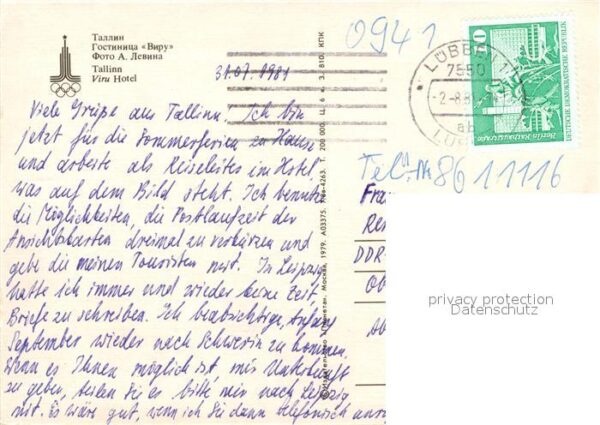 Таллин
Гостиница «Виру»
Фото А. Левина
Tallinn
Viru Hotel
31.07.1981
Viele Grüße aus Tallinn. Ich bin
jetzt für die Sommerferien zu Hause
und arbeite als Reiseleiter im Hotel
was auf dem Bild steht. Ich benutze
die Möglichkeiten, die Postlaufzeit der
Ansichtskarten dreimal zu verkürzen und
gebe die meinen Touristen mit. In Leipzig
hatte ich immer und wieder keine Zeit,
Briefe zu schreiben. Ich beabsichtige, Anfang
September wieder nach Schwerin zu kommen.
Wenn es Ihnen möglich ist, mir Unterkunft
zu geben, teilen Sie es bitte mir nach Leipzig
mit. Es wäre gut, wenn ich Sie dann telefonisch
Москва, 1979. А03375. 200 000
0941
LÜBBEN 1
7550
-2-8.81
ab
10
DEUTSCHE DEMOKRATISCHE REPUBLIK
Tel. Nr 8611116
DDR-
privacy protection
Datenschutz